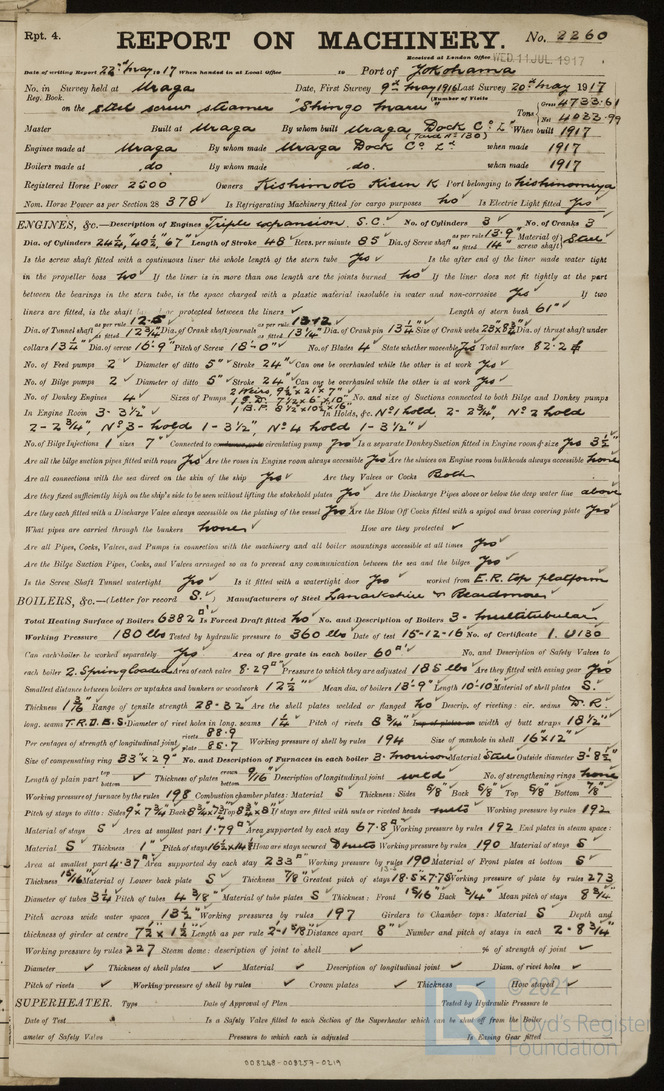 Rpt. 4. REPORT ON MACHINERY. No. 2260
Received at London Office WED. 11 JUL. 1917
Date of writing Report 22nd May 1917 When handed in at Local Office 10 Port of Yokohama
No. in Survey held at Uraga Date, First Survey 9th May 1916 Last Survey 20th May 1917
Reg. Book. (Number of Visits
on the steel screw steamer "Shingo Maru" Tons Gross 4733.61 Net 4023.99
Master Built at Uraga By whom built Uraga Dock Co. Ld. (Yard No. 130) When built 1917
Engines made at Uraga By whom made Uraga Dock Co. Ld. when made 1917
Boilers made at do By whom made do. when made 1917
Registered Horse Power 2500 Owners Kishimoto Kisen K Port belonging to Nishinomiya
Nom. Horse Power as per Section 28 378 Is Refrigerating Machinery fitted for cargo purposes no Is Electric Light fitted Yes
ENGINES, &c.—Description of Engines Triple expansion S.C. No. of Cylinders 3 No. of Cranks 3
Dia. of Cylinders 24¾", 40½", 67" Length of Stroke 48" Revs. per minute 85 Dia. of Screw shaft as per rule 13.9" as fitted 14" Material of screw shaft Steel
Is the screw shaft fitted with a continuous liner the whole length of the stern tube Yes Is the after end of the liner made water tight
in the propeller boss no If the liner is in more than one length are the joints burned no If the liner does not fit tightly at the part
between the bearings in the stern tube, is the space charged with a plastic material insoluble in water and non-corrosive Yes If two
liners are fitted, is the shaft lapped or protected between the liners Length of stern bush 61"
Dia. of Tunnel shaft as per rule 12.5 as fitted 12¾" Dia. of Crank shaft journals as per rule 13.12 as fitted 13¼" Dia. of Crank pin 13¼" Size of Crank webs 28"x8¾" Dia. of thrust shaft under
collars 13¼" Dia. of screw 16'-9" Pitch of Screw 18'-0" No. of Blades 4 State whether moveable Yes Total surface 82.2
No. of Feed pumps 2 Diameter of ditto 5" Stroke 24" Can one be overhauled while the other is at work Yes
No. of Bilge pumps 2 Diameter of ditto 5" Stroke 24" Can one be overhauled while the other is at work Yes
No. of Donkey Engines 4 Sizes of Pumps 2 Weirs, 9½"x21"x7" 1 S.D. 7½"x6"x10" 1 B.P. 8½"x10½"x16" No. and size of Suctions connected to both Bilge and Donkey pumps
In Engine Room 3-3½" In Holds, &c. No 1 hold 2-2¾", No 2 hold
2-2¾", No 3-hold 1-3½", No 4 hold 1-3½"
No. of Bilge Injections 1 sizes 7" Connected to condenser, or to circulating pump Yes Is a separate Donkey Suction fitted in Engine room & size Yes 3½"
Are all the bilge suction pipes fitted with roses Yes Are the roses in Engine room always accessible Yes Are the sluices on Engine room bulkheads always accessible none
Are all connections with the sea direct on the skin of the ship Yes Are they Valves or Cocks Both
Are they fixed sufficiently high on the ship's side to be seen without lifting the stokehold plates Yes Are the Discharge Pipes above or below the deep water line above
Are they each fitted with a Discharge Valve always accessible on the plating of the vessel Yes Are the Blow Off Cocks fitted with a spigot and brass covering plate Yes
What pipes are carried through the bunkers none How are they protected
Are all Pipes, Cocks, Valves, and Pumps in connection with the machinery and all boiler mountings accessible at all times Yes
Are the Bilge Suction Pipes, Cocks, and Valves arranged so as to prevent any communication between the sea and the bilges Yes
Is the Screw Shaft Tunnel watertight Yes Is it fitted with a watertight door Yes worked from E.R. top platform
BOILERS, &c.—(Letter for record S.) Manufacturers of Steel Lanarkshire & Beardmore
Total Heating Surface of Boilers 6382 Is Forced Draft fitted no No. and Description of Boilers 3-multitubular
Working Pressure 180 lbs Tested by hydraulic pressure to 360 lbs Date of test 15-12-16 No. of Certificate 1. U130
Can each boiler be worked separately Yes Area of fire grate in each boiler 60 No. and Description of Safety Valves to
each boiler 2. Spring loaded Area of each valve 8.29 Pressure to which they are adjusted 185 lbs Are they fitted with easing gear Yes
Smallest distance between boilers or uptakes and bunkers or woodwork 12½" Mean dia. of boilers 13'-9" Length 10'-10" Material of shell plates S.
Thickness 1 3/16 Range of tensile strength 28-32 Are the shell plates welded or flanged no Descrip. of riveting: cir. seams D.R.
long. seams T.R.D.B.S. Diameter of rivet holes in long. seams 1¼ Pitch of rivets 8¾" Lap of plates or width of butt straps 18½"
Per centages of strength of longitudinal joint rivets 88.9 plate 85.7 Working pressure of shell by rules 194 Size of manhole in shell 16"x12"
Size of compensating ring 33"x29" No. and Description of Furnaces in each boiler 3. morison Material Steel Outside diameter 3'-8½"
Length of plain part top bottom Thickness of plates crown bottom 9/16 Description of longitudinal joint weld No. of strengthening rings none
Working pressure of furnace by the rules 198 Combustion chamber plates: Material S Thickness: Sides 5/8" Back 5/8" Top 5/8 Bottom 7/8"
Pitch of stays to ditto: Sides 9"x7¾" Back 8¾"x7¾" Top 8¾"x8" If stays are fitted with nuts or riveted heads nuts Working pressure by rules 192
Material of stays S Area at smallest part 1.79 Area supported by each stay 67.8 Working pressure by rules 192 End plates in steam space:
Material S Thickness 1" Pitch of stays 16½"x14½" How are stays secured D nuts Working pressure by rules 190 Material of stays S
Area at smallest part 4.37 Area supported by each stay 233 Working pressure by rules 190 Material of Front plates at bottom S
Thickness 15/16 Material of Lower back plate S Thickness 7/8 Greatest pitch of stays 13.5x7.75 Working pressure of plate by rules 273
Diameter of tubes 3¼ Pitch of tubes 4 3/8" Material of tube plates S Thickness: Front 15/16 Back ¾" Mean pitch of stays 8¾"
Pitch across wide water spaces 13½" Working pressures by rules 197 Girders to Chamber tops: Material S Depth and
thickness of girder at centre 7½ x 1½" Length as per rule 2'-1 5/8" Distance apart 8" Number and pitch of stays in each 2-8¾"
Working pressure by rules 227 Steam dome: description of joint to shell % of strength of joint
Diameter Thickness of shell plates Material Description of longitudinal joint Diam. of rivet holes
Pitch of rivets Working pressure of shell by rules Crown plates Thickness How stayed
SUPERHEATER. Type Date of Approval of Plan Tested by Hydraulic Pressure to
Date of Test Is a Safety Valve fitted to each Section of the Superheater which can be shut off from the Boiler
ameter of Safety Valve Pressure to which each is adjusted Is Easing Gear fitted
© 2021
Lloyd's Register
Foundation
008248-008257-0219